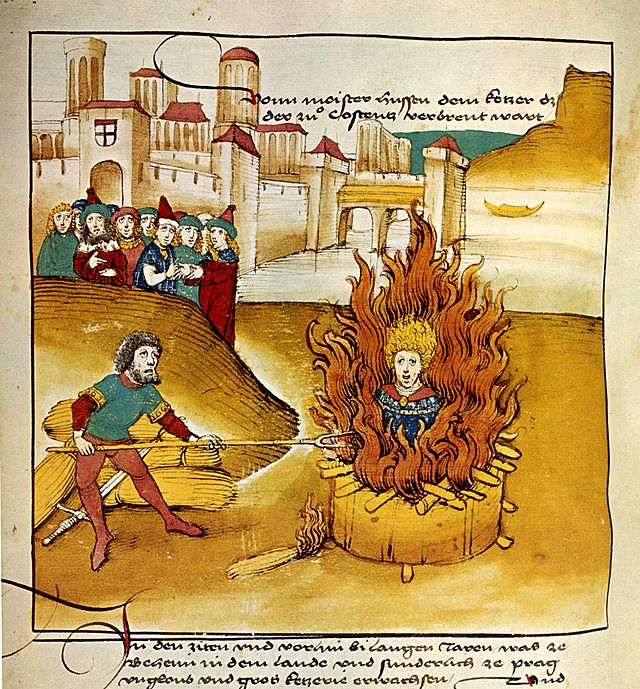 Vonn meister hussen dem ketzer dz
der zuͦ Costentz verbrent wart
In den ziten vnd vor hin bi langen Jaren was ze
Behemi in dem lande vnd sunderlich ze prag
vnglous vnd gros ketzerie erwachsen / vnd